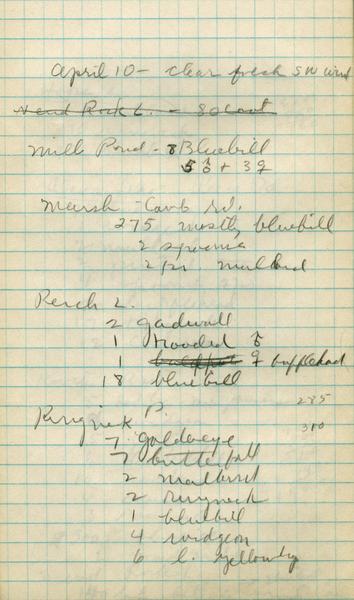 April 10 - clear fresh SW wind
Head Rock L. - 80 coot
Mill Pond - 8 Bluebill
5 ♂ + 3 ♀
Marsh - Comb rd.
275 mostly bluebill
2
2 pr mallard
Perch L.
2 gadwall
1 hooded ♂
1 ♀ bufflehead
18 bluebill
285
Ringneck P.
310
7 goldeneye
7 butterball
2 mallard
2 ringneck
1 bluebill
4 widgeon
6 l. yellowleg